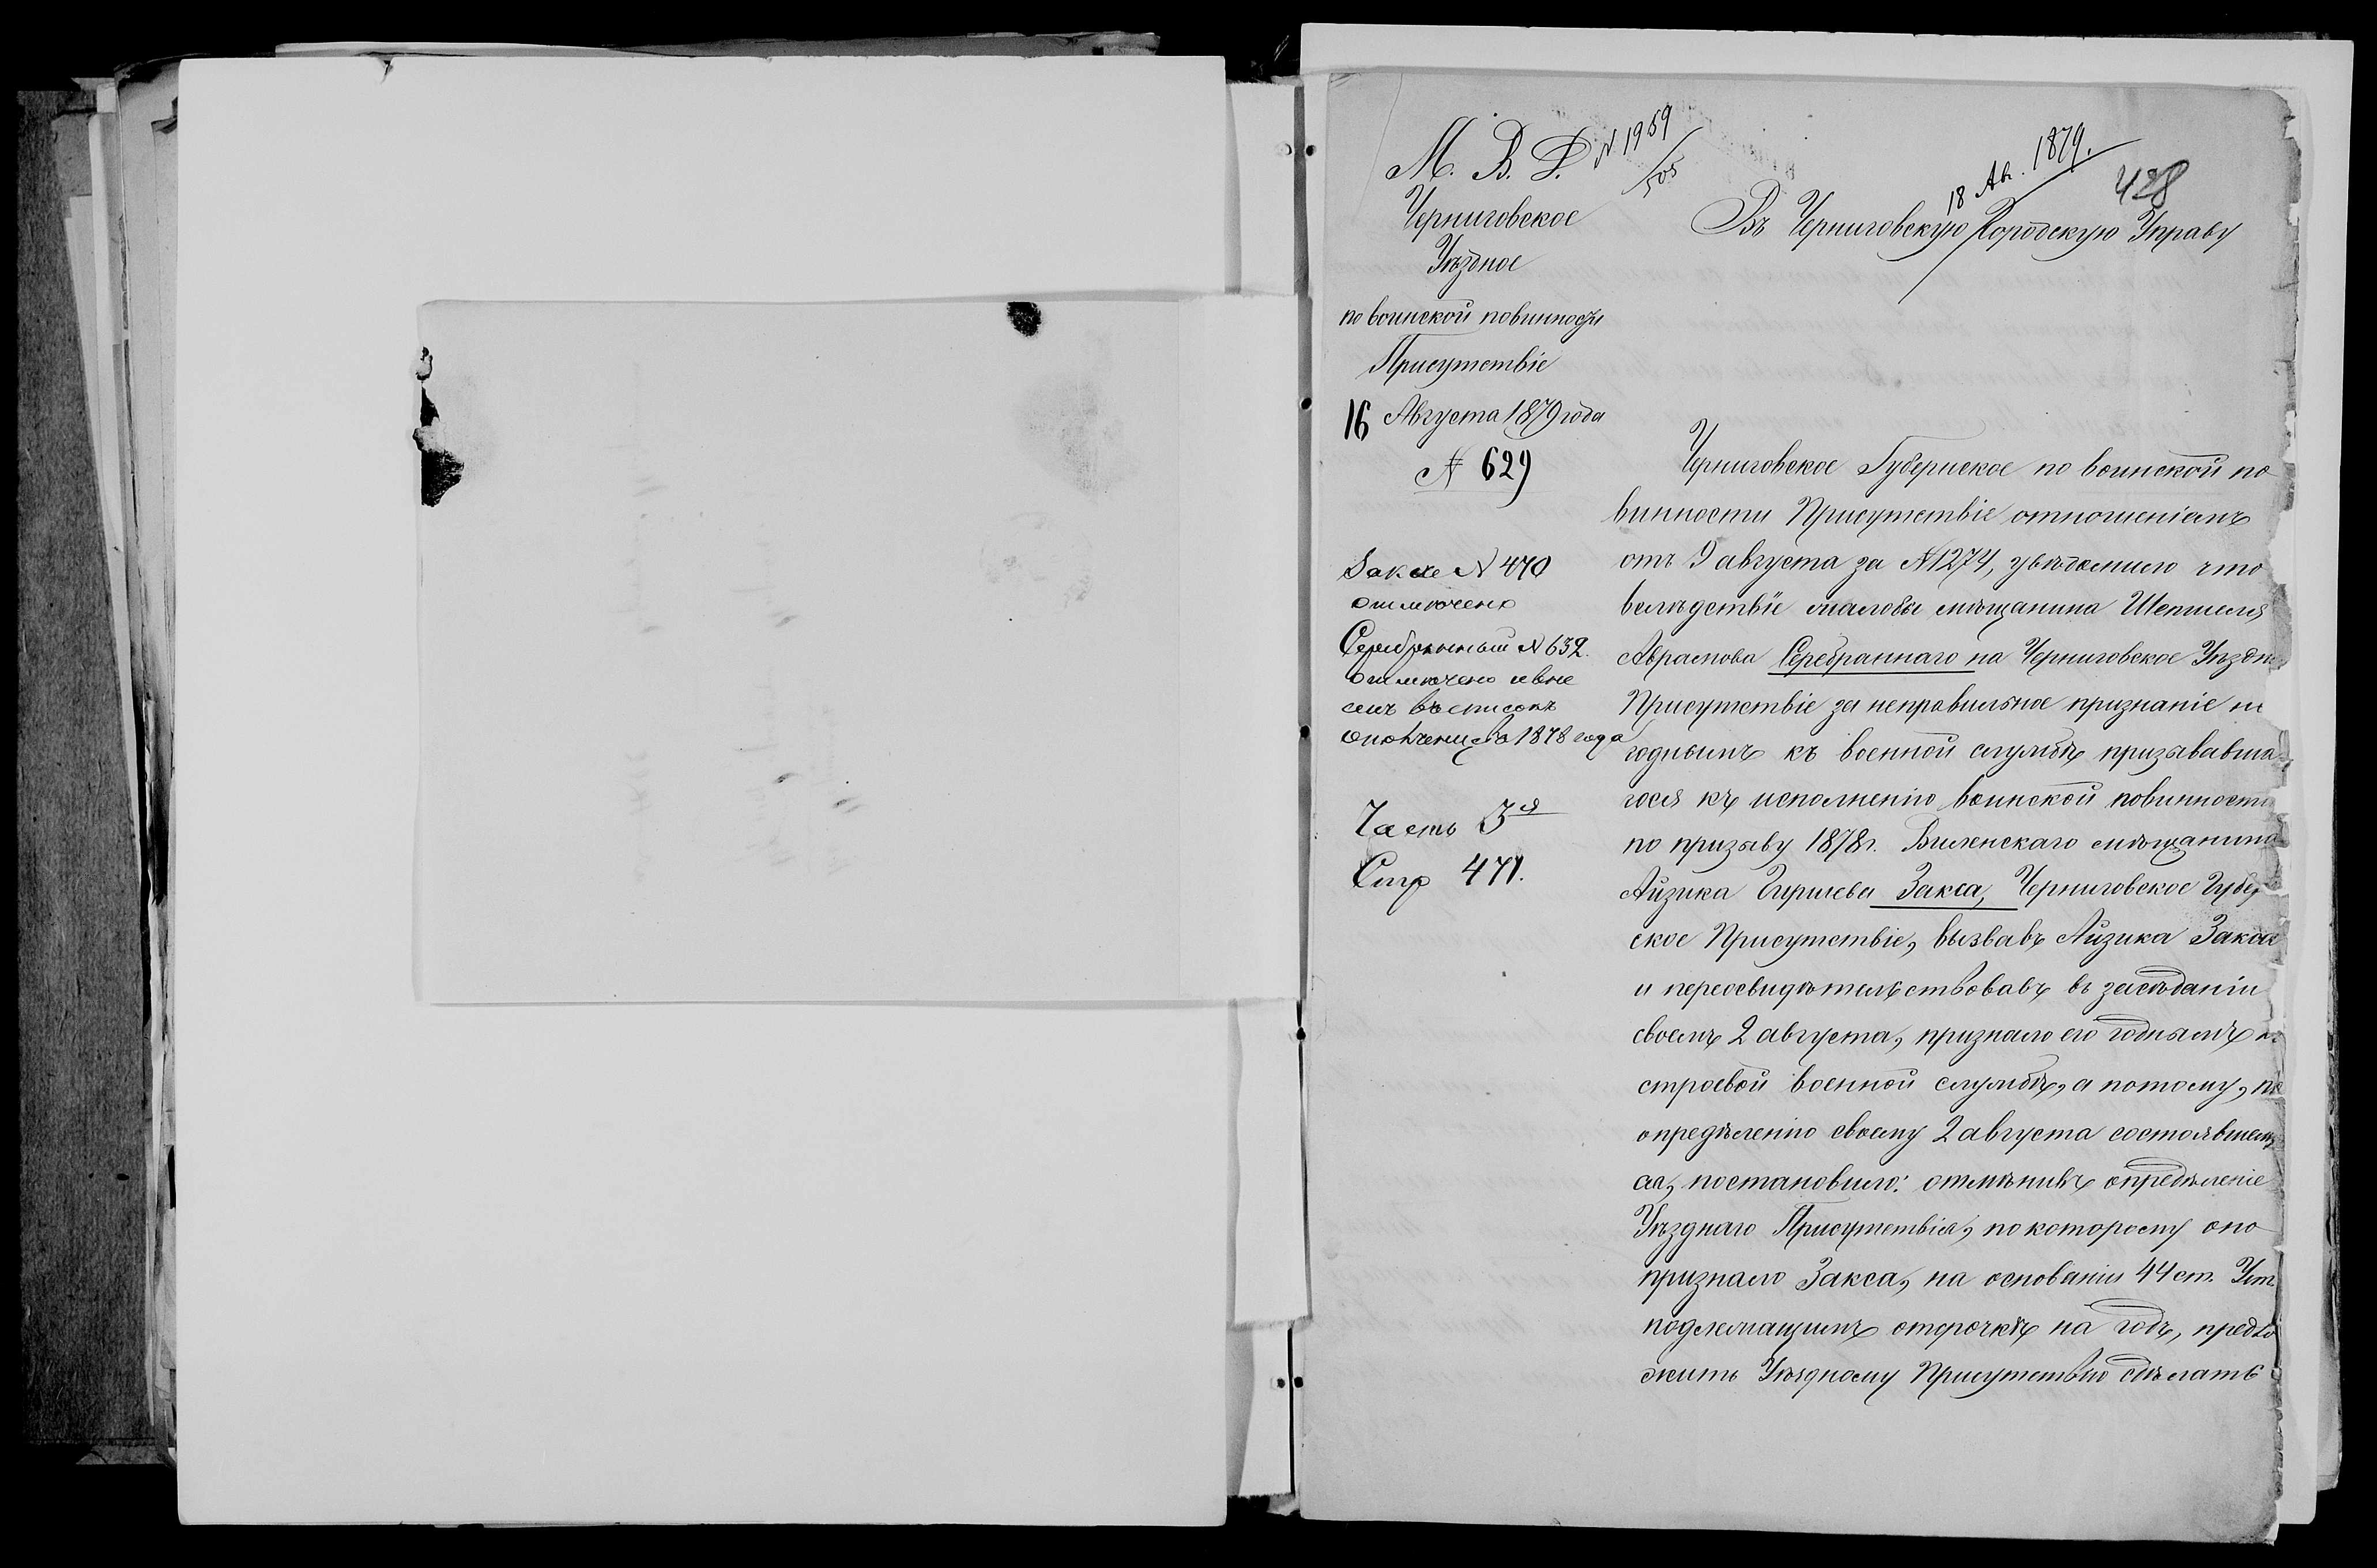 М. В. Д.
N 1959
505
18 Ав. 1879.
428
Черниговское
Уѣздное
по воинской повинности
Присутствіе
16 Августа 1879 года
№ 629
Заксе N 470
отмѣчено
Серебрянный N 632.
отмѣчено и вне
сенъ въ списокъ
ополченцевъ 1878 года
Часть 3я
Стр 471.
Въ Черниговскую Городскую Управу
Черниговское Губернское по воинской по
винности Присутствіе отношеніемъ
отъ 9 августа за №1274, увѣдомило что
вслѣдствіе жалобы мѣщанина Шепшеля
Абрамова Серебраннаго на Черниговское Уѣздн
Присутствіе за неправильное признаніе не
годнымъ къ военной службѣ призывавша
гося къ исполненію воинской повинности
по призыву 1878 г. Виленскаго мѣщанина
Айзика Гиршева Закса, Черниговское Губер
ское Присутствіе, вызвавъ Айзика Закса
и переосвидѣтельствовавъ въ засѣданіи
своемъ 2 августа, признало его годнымъ къ
строевой военной службѣ, а потому, по
опредѣленію своему 2 августа состоявшему
ся, постановило: отмѣнивъ опредѣленіе
Уѣзднаго Присутствія, по которому оно
признало Закса, на основаніи 44 ст. Уст
подлежащимъ отсрочкѣ на годъ, предло
жить Уѣздному Присутствію сдѣлать